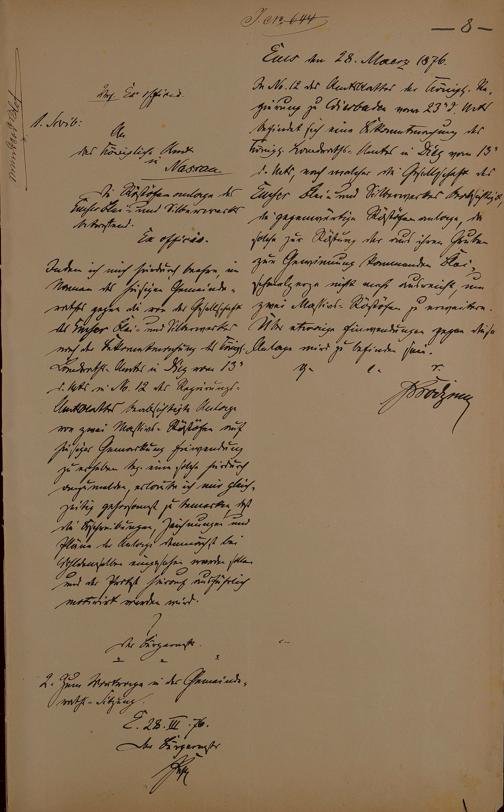 J. No. 644
— 8 —
Ems den 28. Maerz 1876.
In No. 12 des Amtsblattes der Königl. Re-
gierung zu Wiesbaden vom 23t d. Mts
befindet sich eine Bekanntmachung des
Königl. Landraths-Amtes in Diez vom 13t
d. Mts, nach welcher die Gesellschaft des
Emser Blei- und Silberwerkes beabsichtigt,
die gegenwärtige Röstofenanlage, da
solche zur Röstung der aus ihren Gruben
zur Gewinnung kommenden Blei-
schmelzerze nicht mehr ausreicht, um
zwei Massiv-Röstöfen zu erweitern.
Über etwaige Einwendungen gegen diese
Anlage wird zu befinden sein.
Ex officio.
1. Schrb.
An
das Königliche Amt
in
Nassau
Die Röstofenanlage des
Emser Blei- und Silberwerks
betreffend.
Ex officio.
Indem ich mich hierdurch beehre, im
Namen des hiesigen Gemeinde-
raths gegen die von der Gesellschaft
des Emser Blei- und Silberwerkes
nach der Bekanntmachung des Königl.
Landraths-Amtes in Diez vom 13t
d. Mts in No. 12 des Regierungs-
Amtsblattes beabsichtigte Anlage
von zwei Massiv-Röstöfen auf
hiesiger Gemarkung Einwendung
zu erheben bez. eine solche hierdurch
anzumelden, erlaube ich mir gleich-
zeitig gehorsamst zu bemerken, daß
die Beschreibungen, Zeichnungen und
Pläne der Anlage demnächst bei
eingesehen werden sollen
und der Protest hierauf ausführlich
motivirt werden wird.
Der Bürgermstr.
2. Zum Vortrage in der Gemeinde-
raths-Sitzung.
E. 28. III. 76.
Der Bürgermstr